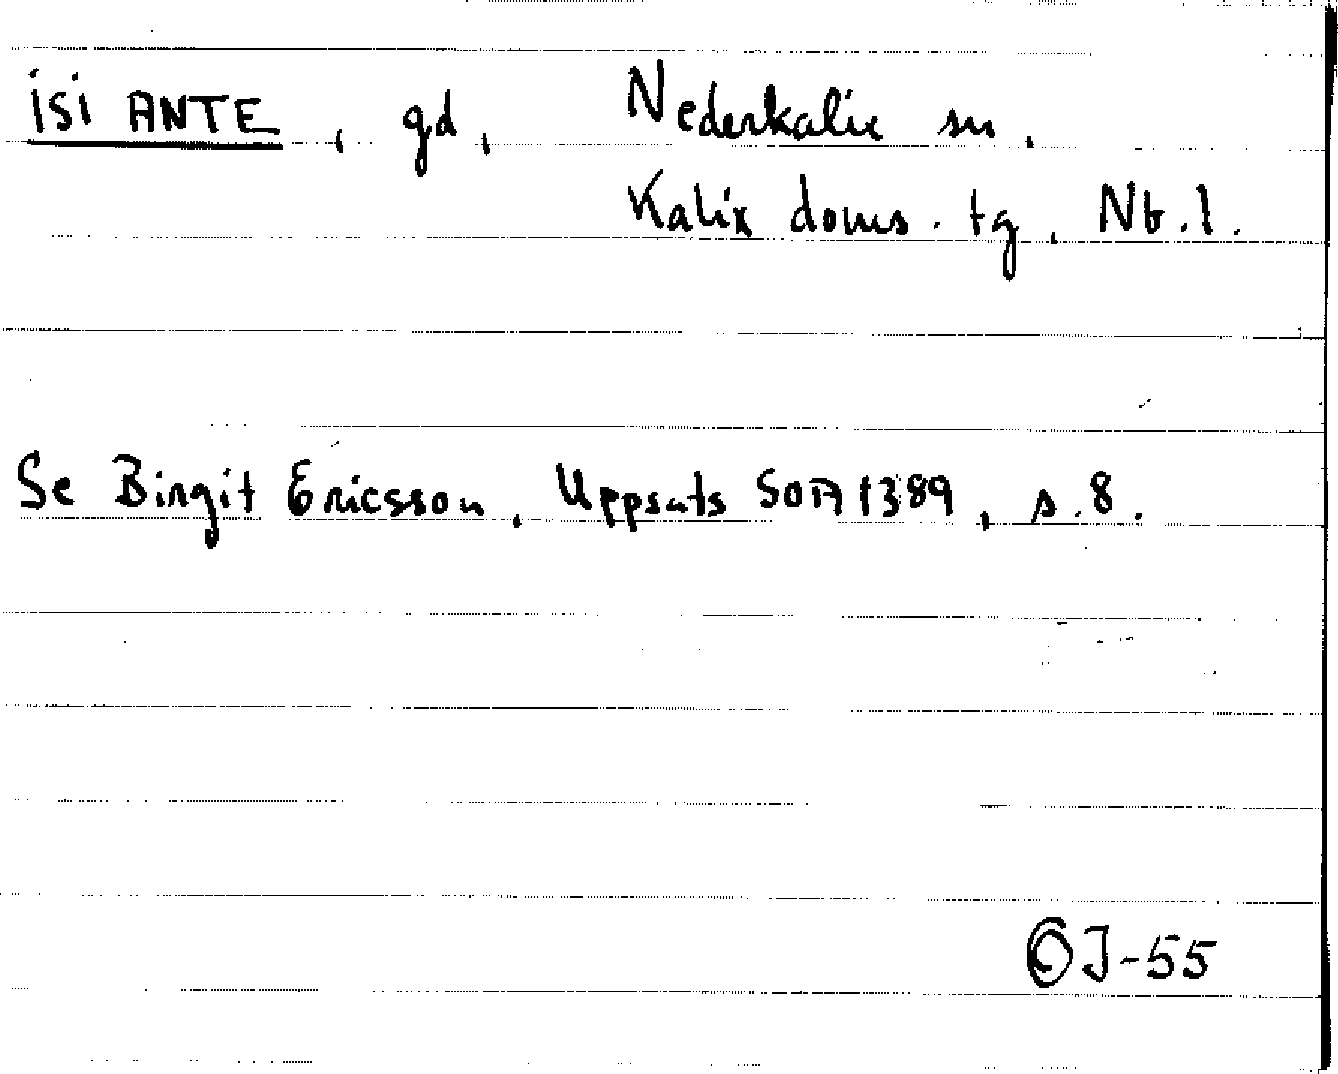 isi ANTE, gd, Nederkalix sn,
Kalix doms. tg, Nb. l.
Se Birgit Ericsson, Uppsats SOA 1389, s. 8.
OJ-55